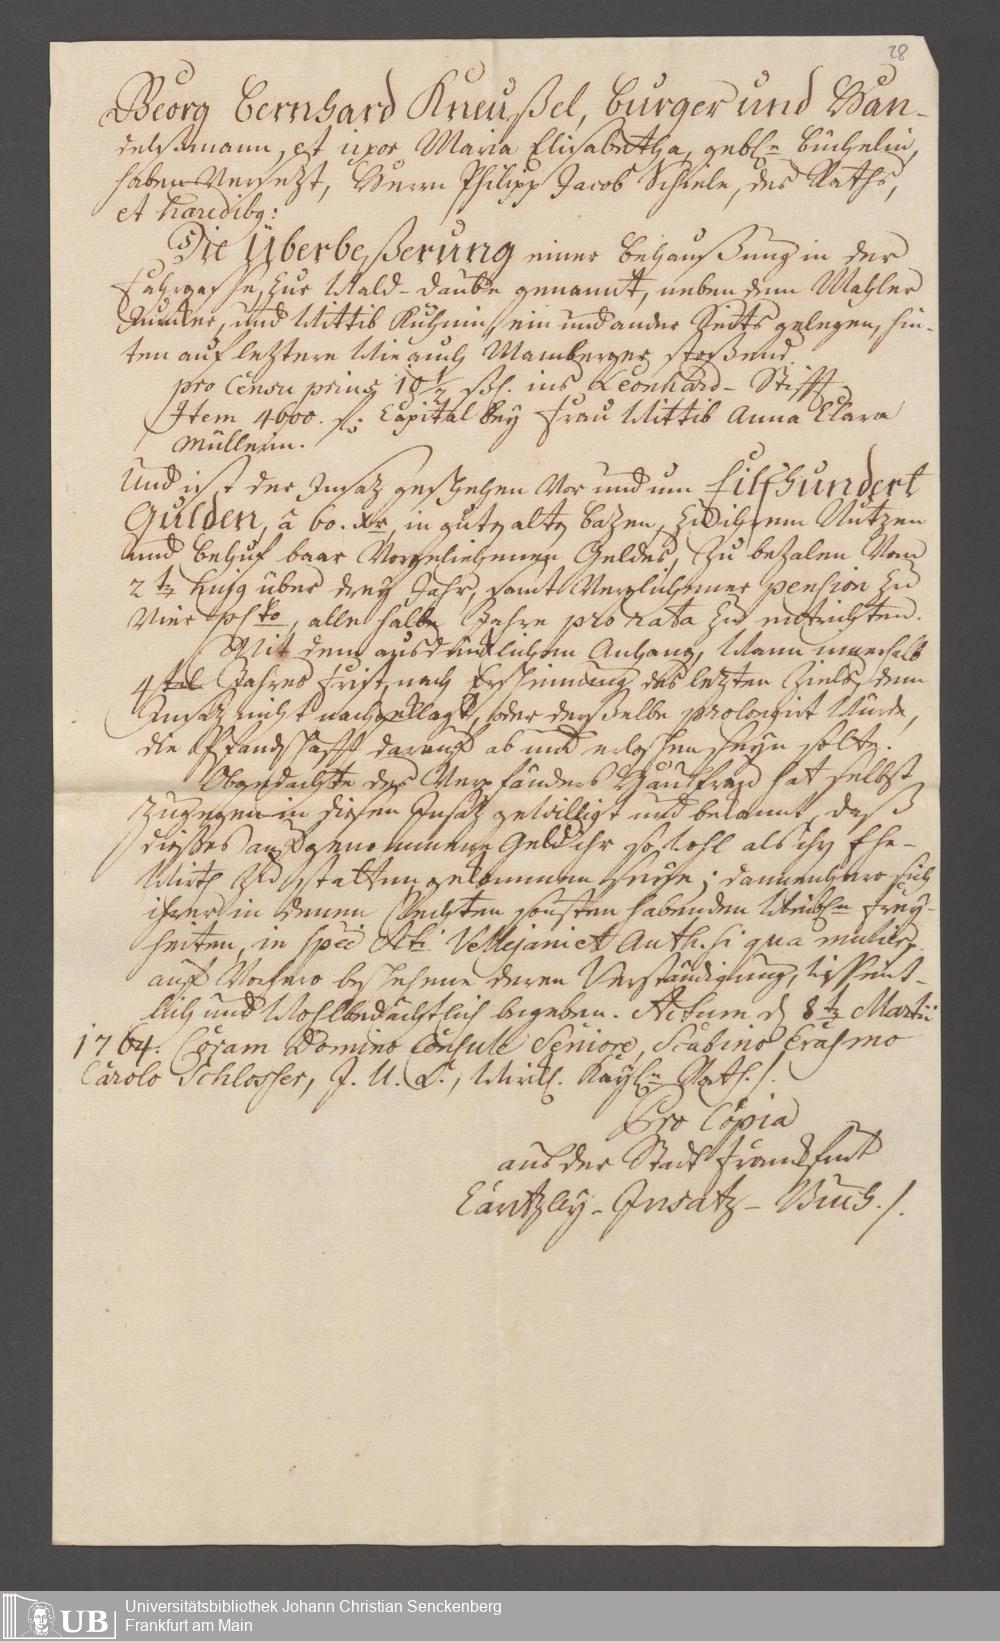 28
Georg Bernhard Kneußel, burger und Han-
delßmann, et uxor Maria Elisabetha, gebhle Büchelin,
haben Versezt, Herrn Philipp Jacob Schiele, des Raths,
et hæredibq:
Die Überbeßerung einer Behaußung in der
Fahrgasse, zur Wald-Daube genannt, neben dem Mahler
Juncker, und Wittib Kuhnin, ein und ander Seits gelegen, hin-
ten auf leztere wie auch Mamberger stoßend.
pro Censu prius 19½ ßhl. ins Leonhard-Stifft
Item 4000. f: Capital bey Frau Wittib Anna Clara
Müllerin.
Und ist der Insaz geschehen Vor und um Eilfhundert
Gulden, â 60. xr, in guten alten bazen, zu ihrem Nutzen
und behuf baar Vorgeliehenen Geldes, zu bezalen Vom
2ten hujq über drey Jahr, samt Verglichener pension zu
Vier pCto, alle halbe Jahre pro rata zu entrichten.
Mit dem ausdrücklichen Anhang, Wann innerhalb
4tel Jahres Frist, nach Erscheinung des letzten Ziels, dem
Insaz nicht nachgeklagt, oder derselbe prolongirt Würde,
die Pfandschafft darauf ab und erloschen seyn solte.
Obgedachte des Verpfänders Haußfrau hat selbst
zugegen in diesen Insaz gewilliget und bekannt, daß
dießes aufgenommene Geld ihr so wohl als ihrem Ehe-
Wirth zu statten gekommen seye; dannenhero sich
ihrer in denen Rechten sonsten habenden Weibhln Frey-
heiten, in spêc Scti Vellejani et Auth. si qua mulier,
auf Vorhero beschehene deren Verständigung, wissent-
lich und Wohlbedächtlich begeben. Actum d 8ten Martii
1764. Coram Domino Consule Seniore, Scabino Erasmo
Carolo Schlosser, J. U. L., Würckl. Kayhln Rath./.
Pro Copia
aus der Stadt Franckfurt
Cantzley-Insatz-Buch./.
UB
Universitätsbibliothek Johann Christian Senckenberg
Frankfurt am Main